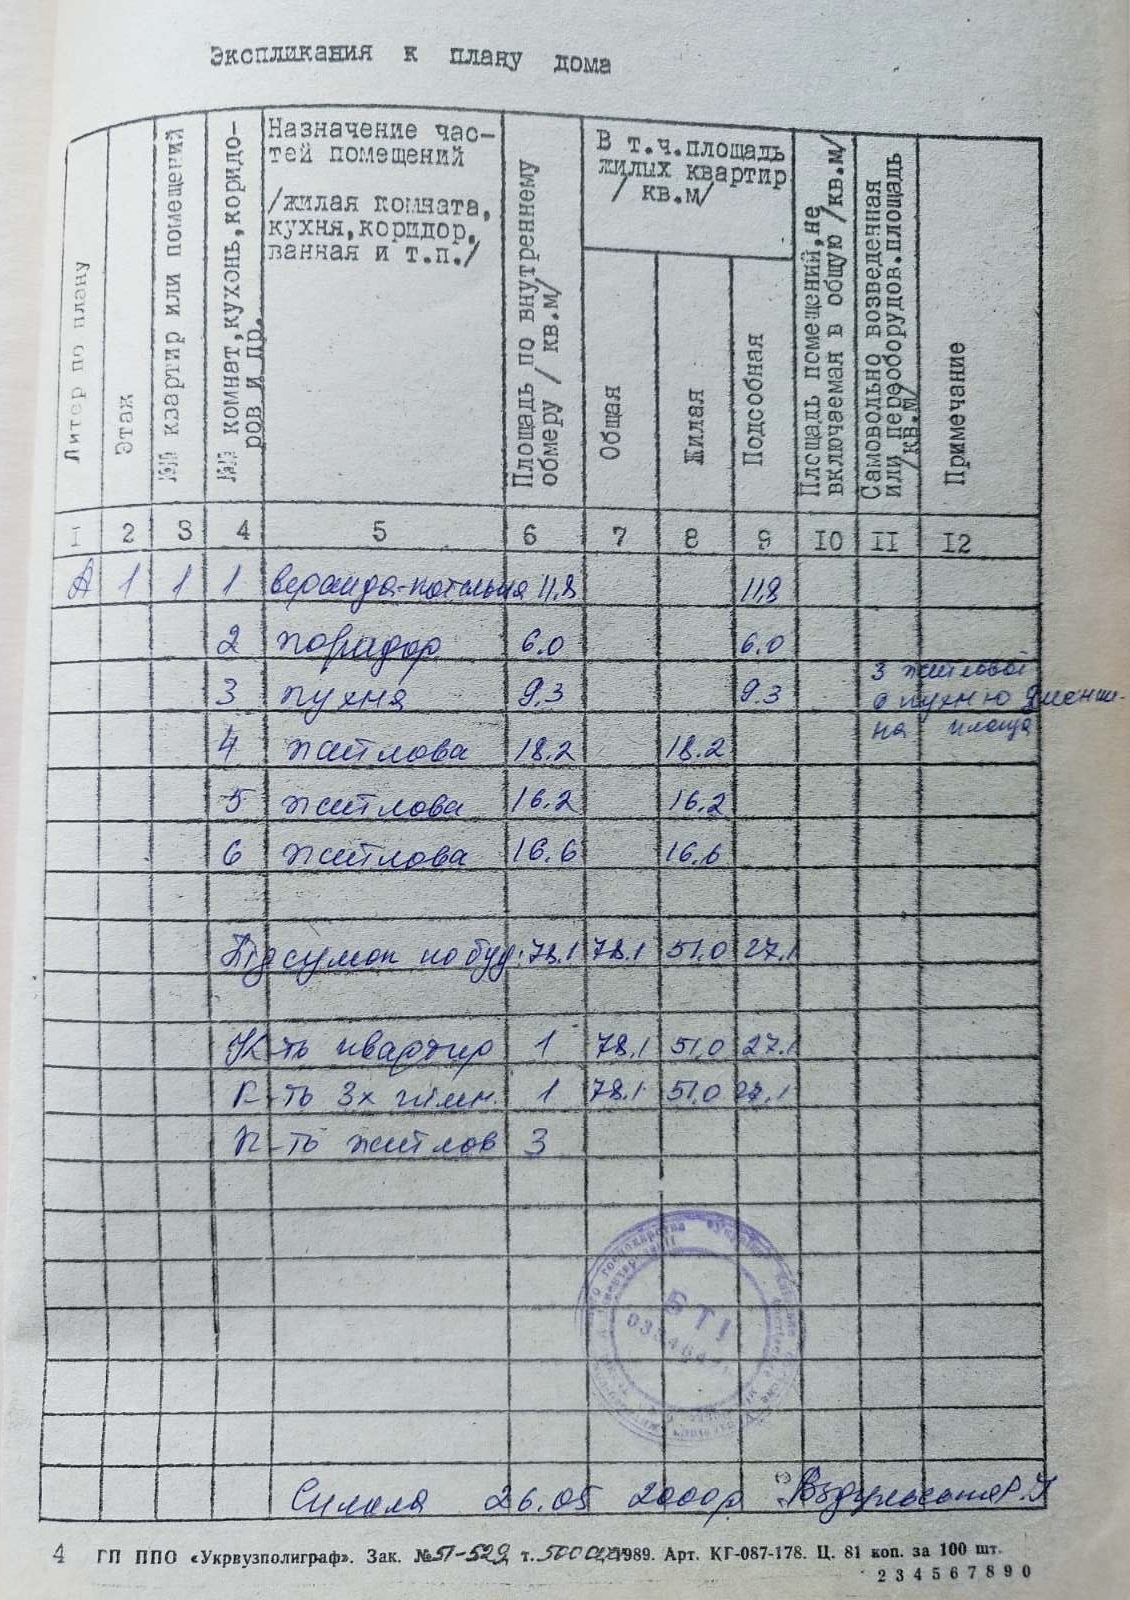 Экспликания к плану дома
Литер по плану
Этаж
№№ квартир или помещений
№№ комнат,кухонь,коридо-
ров и пр.
Назначение час-
тей помещений
/жилая комната,
кухня,коридор,
ванная и т.п./
Площадь по внутреннему
обмеру / кв.м/
В т.ч.площадь
жилых квартир
/ кв.м/
Общая
Жилая
Подсобная
Площадь помещений,не
включаемая в общую /кв.м/
Самовольно возведенная
или переоборудов.площадь
/кв.м/
Примечание
I 2 3 4 5 6 7 8 9 IO II I2
А 1 1 1 веранда-котельня 11,8 11,8
2 коридор 6.0 6.0
3 кухня 9.3 9.3
З житлової
в кухню зменше-
на площа
4 житлова 18.2 18.2
5 житлова 16.2 16.2
6 житлова 16.6 16.6
Підсумок по буд: 78.1 78.1 51.0 27.1
К-ть квартир 1 78.1 51,0 27.1
К-ть 3х кімн. 1 78.1 51.0 27.1
К-ть житлов 3
БТІ
Склала 26.05 2000р.
4 ГП ППО «Укрвузполиграф». Зак. № 51-529 т. 1989. Арт. КГ-087-178. Ц. 81 коп. за 100 шт.
2 3 4 5 6 7 8 9 0